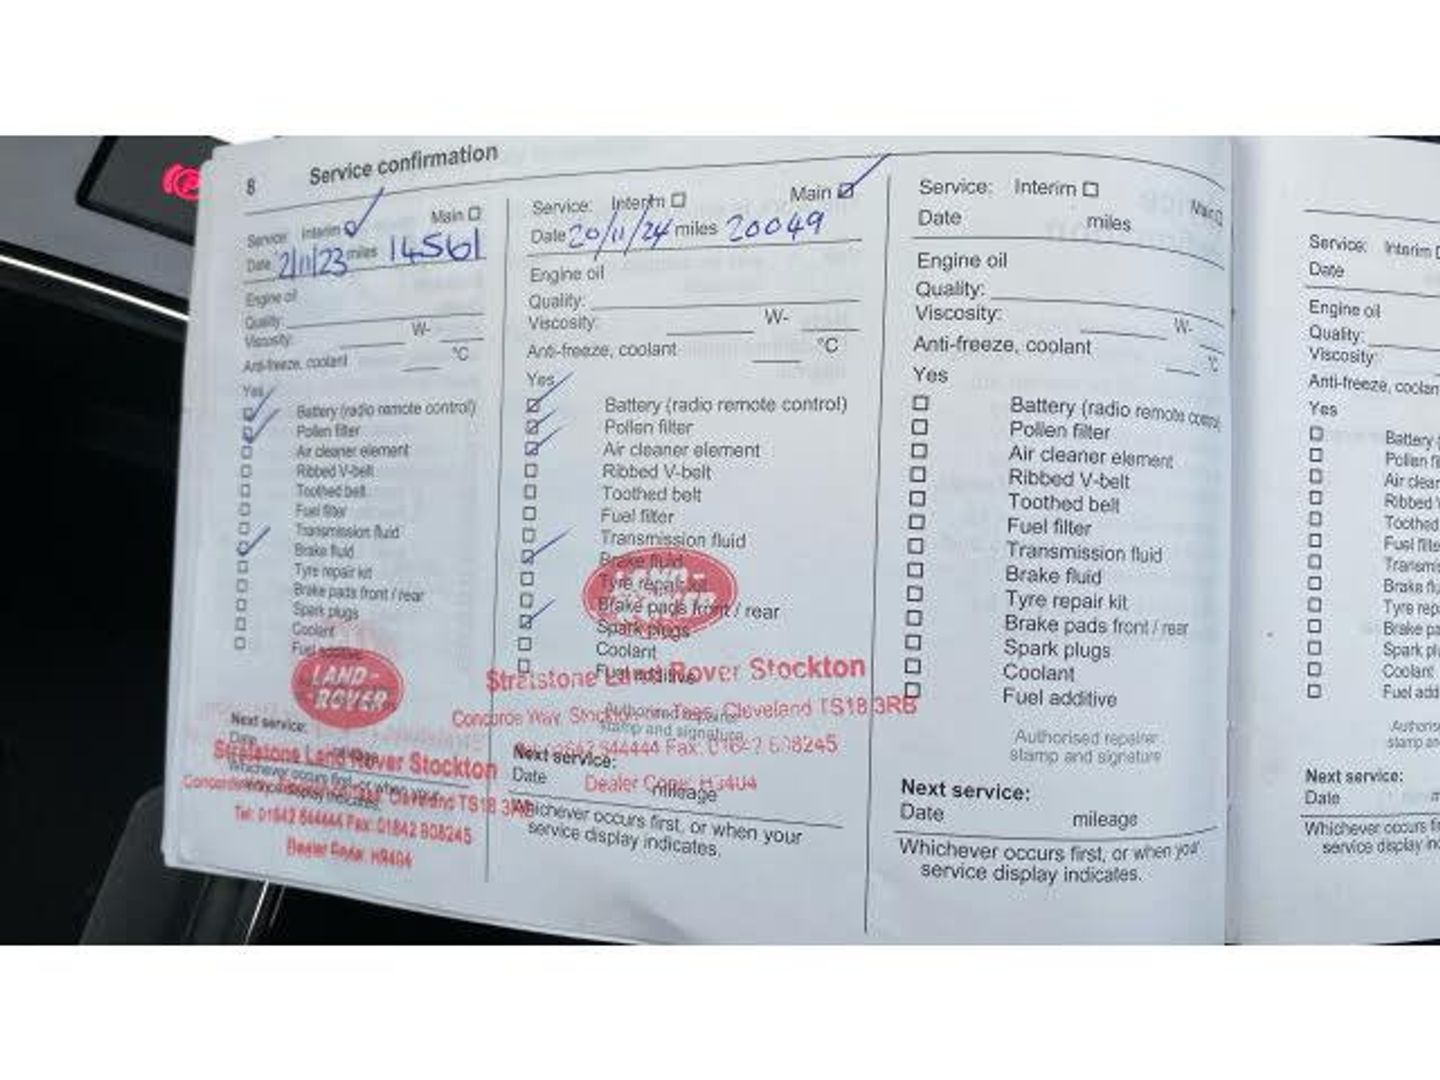 8 Service confirmation
Service: Interim Main
Date 2/11/23 miles 14561
Engine oil
Quality:
Viscosity: W-
Anti-freeze, coolant °C
Yes
Battery (radio remote control)
Pollen filter
Air cleaner element
Ribbed V-belt
Toothed belt
Fuel filter
Transmission fluid
Brake fluid
Tyre repair kit
Brake pads front / rear
Spark plugs
Coolant
Fuel additive
LAND-
ROVER
Next service:
Date
Stratstone Land Rover Stockton
Whichever occurs first, or when your
service display indicates.
Cleveland TS18 3RB
Tel: 01642 544444 Fax: 01642 608245
Dealer Code: H9404
Service: Interim Main
Date 20/11/24 miles 20049
Engine oil
Quality:
Viscosity: W-
Anti-freeze, coolant °C
Yes
Battery (radio remote control)
Pollen filter
Air cleaner element
Ribbed V-belt
Toothed belt
Fuel filter
Transmission fluid
Brake fluid
Tyre repair kit
Brake pads front / rear
Spark plugs
Coolant
Fuel additive
Stratstone Land Rover Stockton
Concorde Way, Stockton on Tees, Cleveland TS18 3RB
Authorised repairer
stamp and signature
544444 Fax: 01642 608245
Next service:
Dealer Code: H9404
Date mileage
Whichever occurs first, or when your
service display indicates.
Service: Interim Main
Date miles
Engine oil
Quality:
Viscosity: W-
Anti-freeze, coolant °C
Yes
Battery (radio remote control)
Pollen filter
Air cleaner element
Ribbed V-belt
Toothed belt
Fuel filter
Transmission fluid
Brake fluid
Tyre repair kit
Brake pads front / rear
Spark plugs
Coolant
Fuel additive
Authorised repairer
stamp and signature
Next service:
Date mileage
Whichever occurs first, or when your
service display indicates.
Service: Interim
Date
Engine oil
Quality:
Viscosity:
Anti-freeze, coolan
Yes
Battery (
Pollen fi
Air clear
Ribbed V
Toothed
Fuel filte
Transmis
Brake flu
Tyre rep
Brake pa
Spark plu
Coolant
Fuel add
Authoris
stamp an
Next service:
Date m
Whichever occurs fi
service display inc